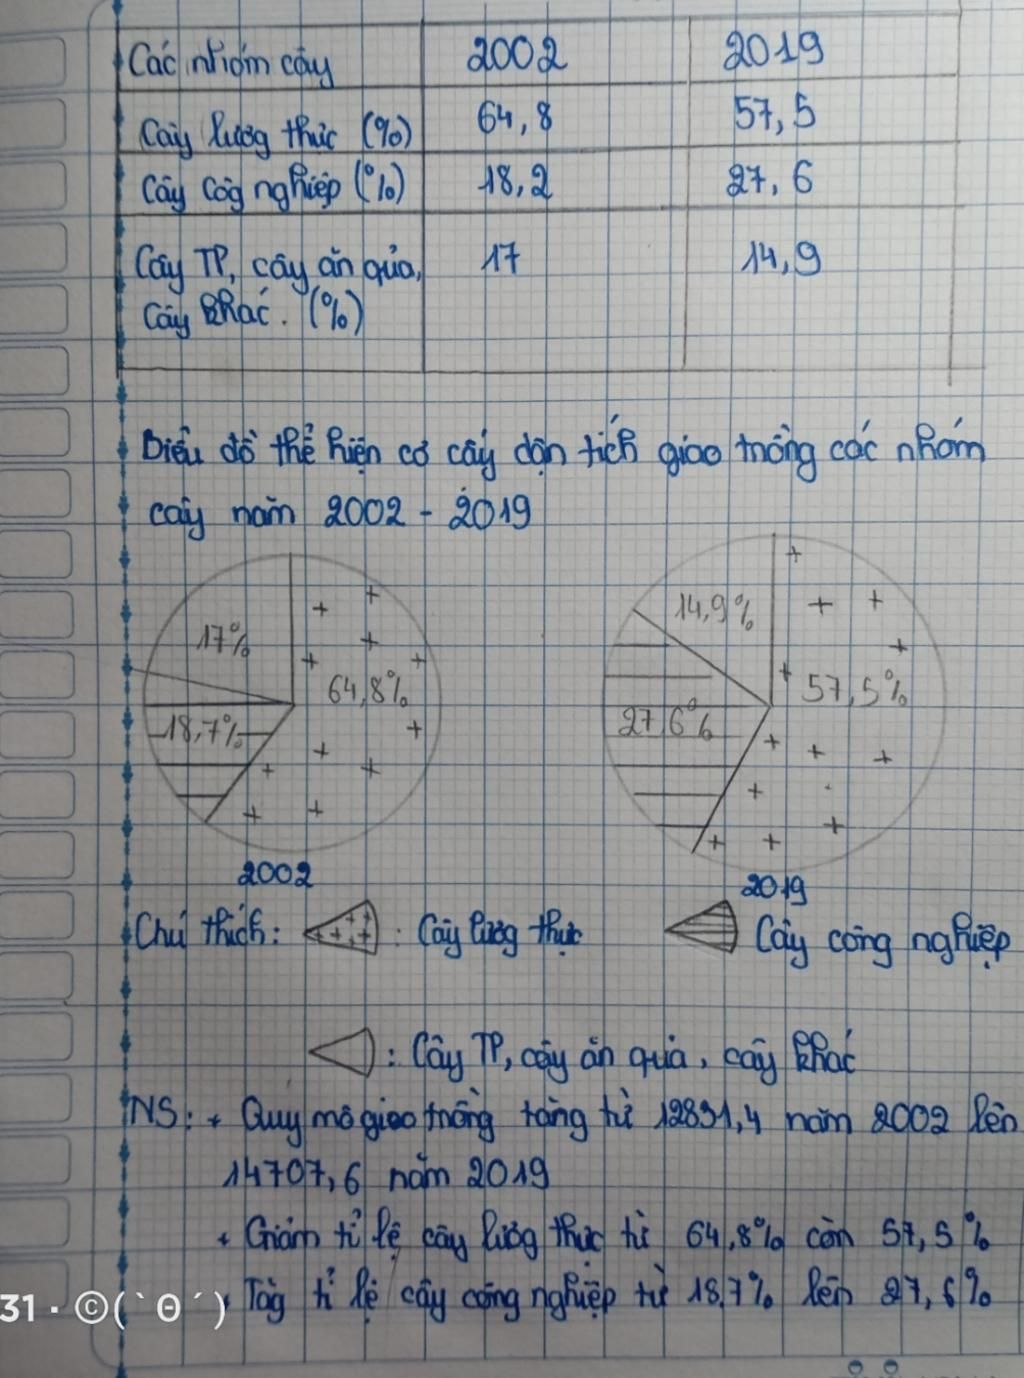 Các nhóm cây 2002 2019
Cây lương thực (%) 64,8 57,5
Cây công nghiệp (%) 18,2 27,6
Cây TP, cây ăn quả, 17 14,9
cây khác. (%)
Biểu đồ thể hiện cơ cấy dện tích gieo trồng các nhóm
cây năm 2002 - 2019
17% 64,8% 18,7%
14,9% 57,5% 27,6%
2002 2019
Chú thích: : Cây lương thực Cây công nghiệp
: Cây TP, cây ăn quả, cây khác
NS: + Quy mô gieo trồng tăng từ 12831,4 năm 2002 lên
14707,6 năm 2019
+ Giảm tỉ lệ cây lương thực từ 64,8% còn 57,5%
+ Tăng tỉ lệ cây công nghiệp từ 18,7% lên 27,6%
31 · ©(`Θ´)